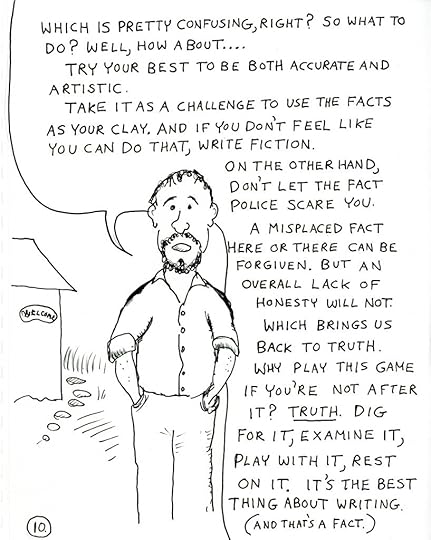 WHICH IS PRETTY CONFUSING, RIGHT? SO WHAT TO
DO? WELL, HOW ABOUT....
TRY YOUR BEST TO BE BOTH ACCURATE AND
ARTISTIC.
TAKE IT AS A CHALLENGE TO USE THE FACTS
AS YOUR CLAY. AND IF YOU DON'T FEEL LIKE
YOU CAN DO THAT, WRITE FICTION.
ON THE OTHER HAND,
DON'T LET THE FACT
POLICE SCARE YOU.
A MISPLACED FACT
HERE OR THERE CAN BE
FORGIVEN. BUT AN
OVERALL LACK OF
HONESTY WILL NOT.
WHICH BRINGS US
BACK TO TRUTH.
WHY PLAY THIS GAME
IF YOU'RE NOT AFTER
IT? TRUTH. DIG
FOR IT, EXAMINE IT,
PLAY WITH IT, REST
ON IT. IT'S THE BEST
THING ABOUT WRITING.
(AND THAT'S A FACT.)
WELCOME
10.